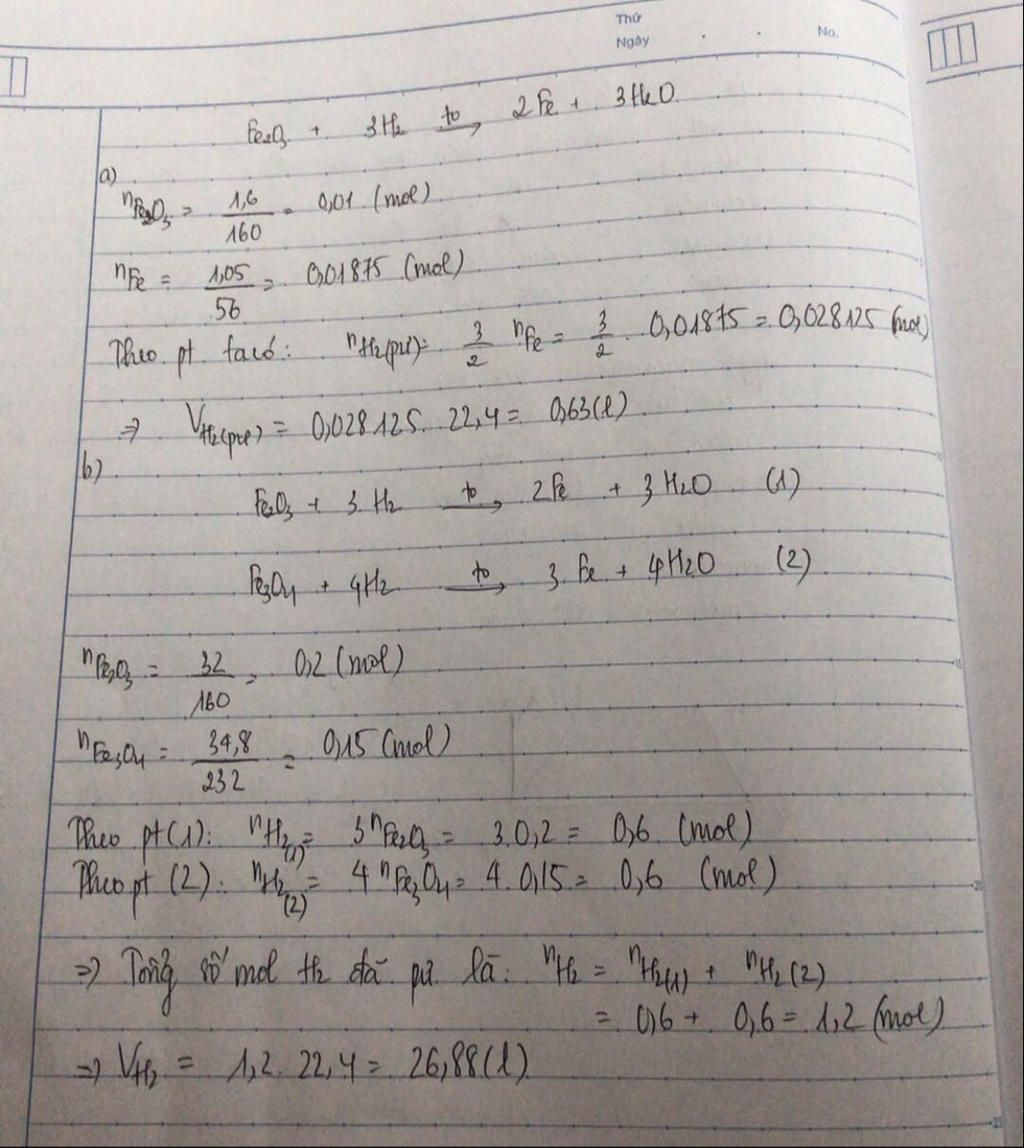 Thứ
Ngày . . No.
Fe2O3 + 3H2 to→ 2Fe + 3H2O
a)
nFe2O3 = 1,6/160 = 0,01 (mol)
nFe = 1,05/56 = 0,01875 (mol)
Theo pt ta có: nH2(pư) = 3/2 nFe = 3/2 . 0,01875 = 0,028125 (mol)
=> VH2(pư) = 0,028125. 22,4 = 0,63(l)
b)
Fe2O3 + 3 H2 to→ 2Fe + 3H2O (1)
Fe3O4 + 4H2 to→ 3 Fe + 4H2O (2)
nFe2O3 = 32/160 = 0,2 (mol)
nFe3O4 = 34,8/232 = 0,15 (mol)
Theo pt (1): nH2(1) = 3nFe2O3 = 3.0,2 = 0,6 (mol)
Theo pt (2): nH2(2) = 4 nFe3O4 = 4.0,15 = 0,6 (mol)
=> Tổng số mol H2 đã pư là: nH2 = nH2(1) + nH2(2)
= 0,6 + 0,6 = 1,2 (mol)
=> VH2 = 1,2. 22,4 = 26,88(l)